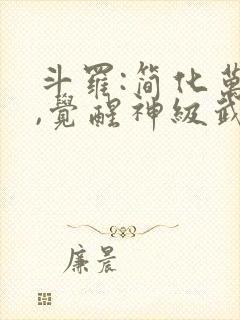 斗羅:簡化萬
,覺醒神級武
廉晨